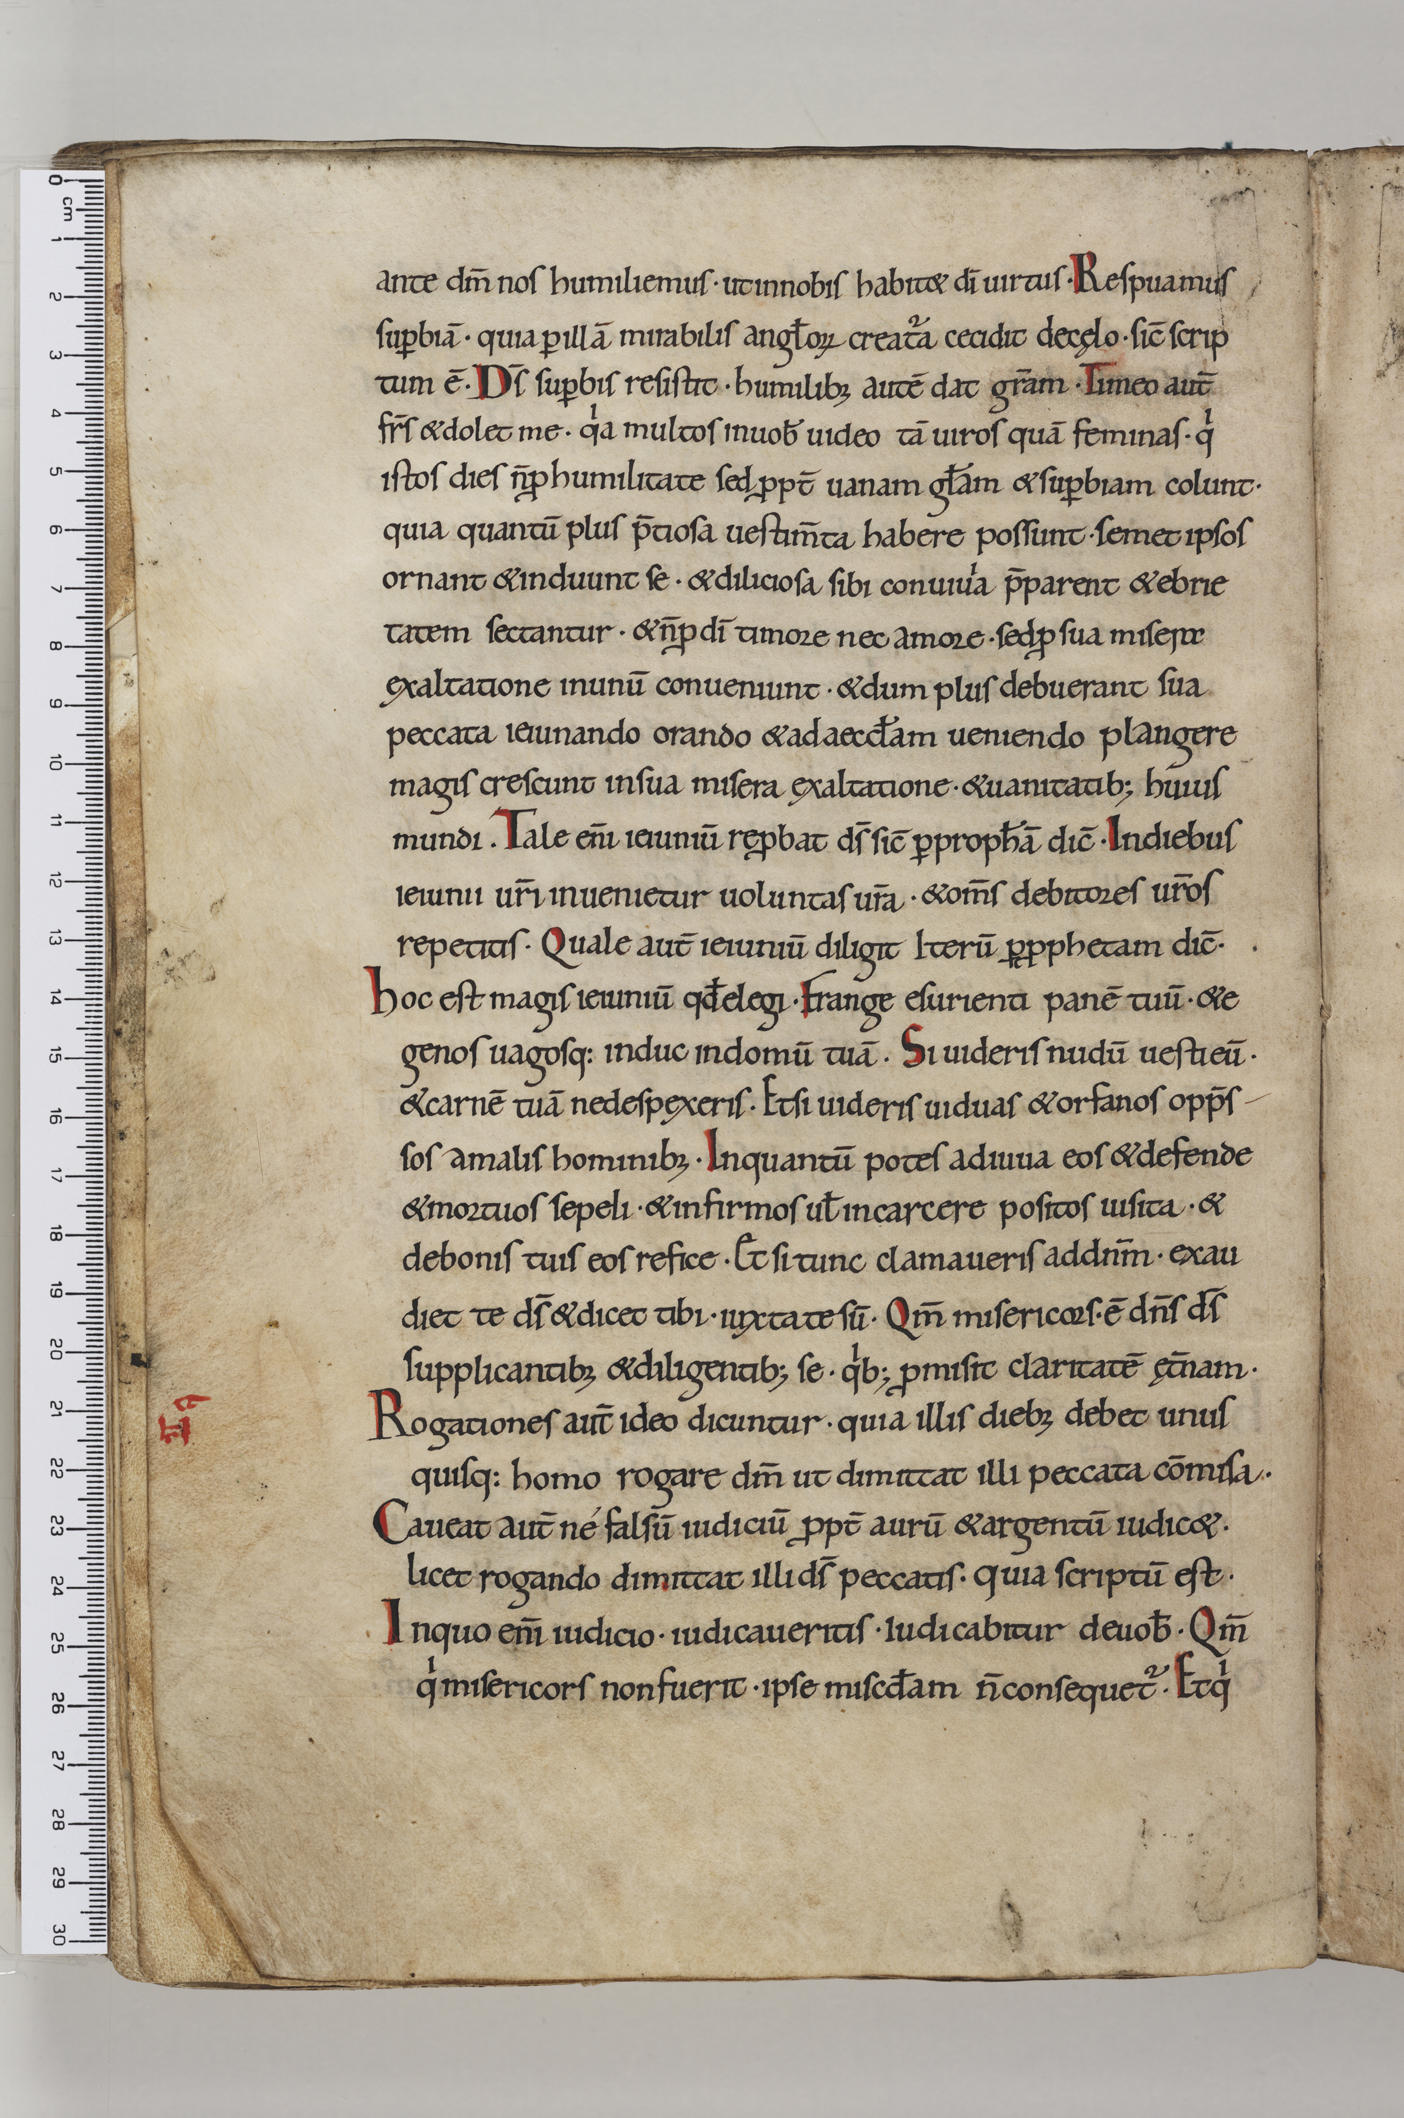 ante dm̄ nos humiliemus · ut innobis habit& dī uirtus · Respuamus
suꝑbiā · quia ꝑ illā mirabilis angl̄oꝝ creat̄a cecidit decęlo · sic̄ scrip
tum ē · Ds̄ suꝑbis resistit · humilibꝫ autē dat gr̄am · Timeo aut̄
fr̄s & dolet me · qͥa multos inuob̄ uideo tā uiros quā feminas · qͥ
istos dies n̄ ꝓ humilitate sed ꝓpt̄ uanam gl̄am & suꝑbiam colunt ·
quia quantū plus p̄tiosa uestim̄ta habere possunt · semet ipsos
ornant & induunt se · & diliciosa sibi conuiuͥa p̄parent & ebrie
tatem sectantur · & n̄ ꝓ dī timore nec amore · sed ꝓ sua miseræ
exaltatione inunū conueniunt · & dum plus debuerant sua
peccata ieiunando orando & adaeccl̄am ueniendo plangere
magis crescunt insua misera exaltatione · & uanitatib; huius
mundi . Tale enī ieiuniū reꝓbat ds̄ sic̄ ꝑ proph̄ā dic̄ · Indiebus
ieiunii ur̄i inuenietur uoluntas ur̄a · & om̄s debitores ur̄os
repetitis · Quale aut̄ ieiuniū diligit Iterū ꝑ ꝓphetam dic̄ ·
hoc est magis ieiuniū qd̄ elegi · Frange esurienti panē tuū · & e
genos uagosq: induc indomū tuā . Si uideris nudū uesti eū ·
& carnē tuā nedespexeris · Etsi uideris uiduas & orfanos opp̄s
sos amalis hominibꝫ · Inquantū potes adiuua eos & defende
& mortuos sepeli · & infirmos ul̄ incarcere positos uisita · &
debonis tuis eos refice · Et si tunc clamaueris addn̄m · exau
diet te ds̄ & dicet tibi · iuxtate sū · Qm̄ misericors · ē dn̄s ds̄
supplicantibꝫ & diligentib; se · qͥb; ꝓmisit claritatē ęt̄nam ·
Rogationes aut̄ ideo dicuntur · quia illis diebꝫ debet unus
quisq: homo rogare dm̄ ut dimittat illi peccata cōmisa ·
Caueat aut̄ né falsū iudiciū ꝓpt̄ aurū & argentū iudic& ·
licet rogando dimittat illi ds̄ peccatis · quia scriptū est ·
Inquo enī iudicio · iudicaueritis · Iudicabitur deuob̄ · Qm̄
qͥ misericors nonfuerit · ipse miscd̄am n̄ consequet̄ · Et qͥ